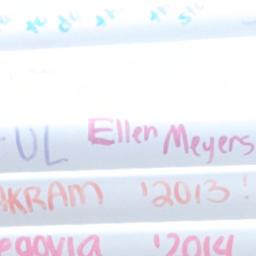 UL Ellen Meyers
AKRAM '2013!
egovia '2014